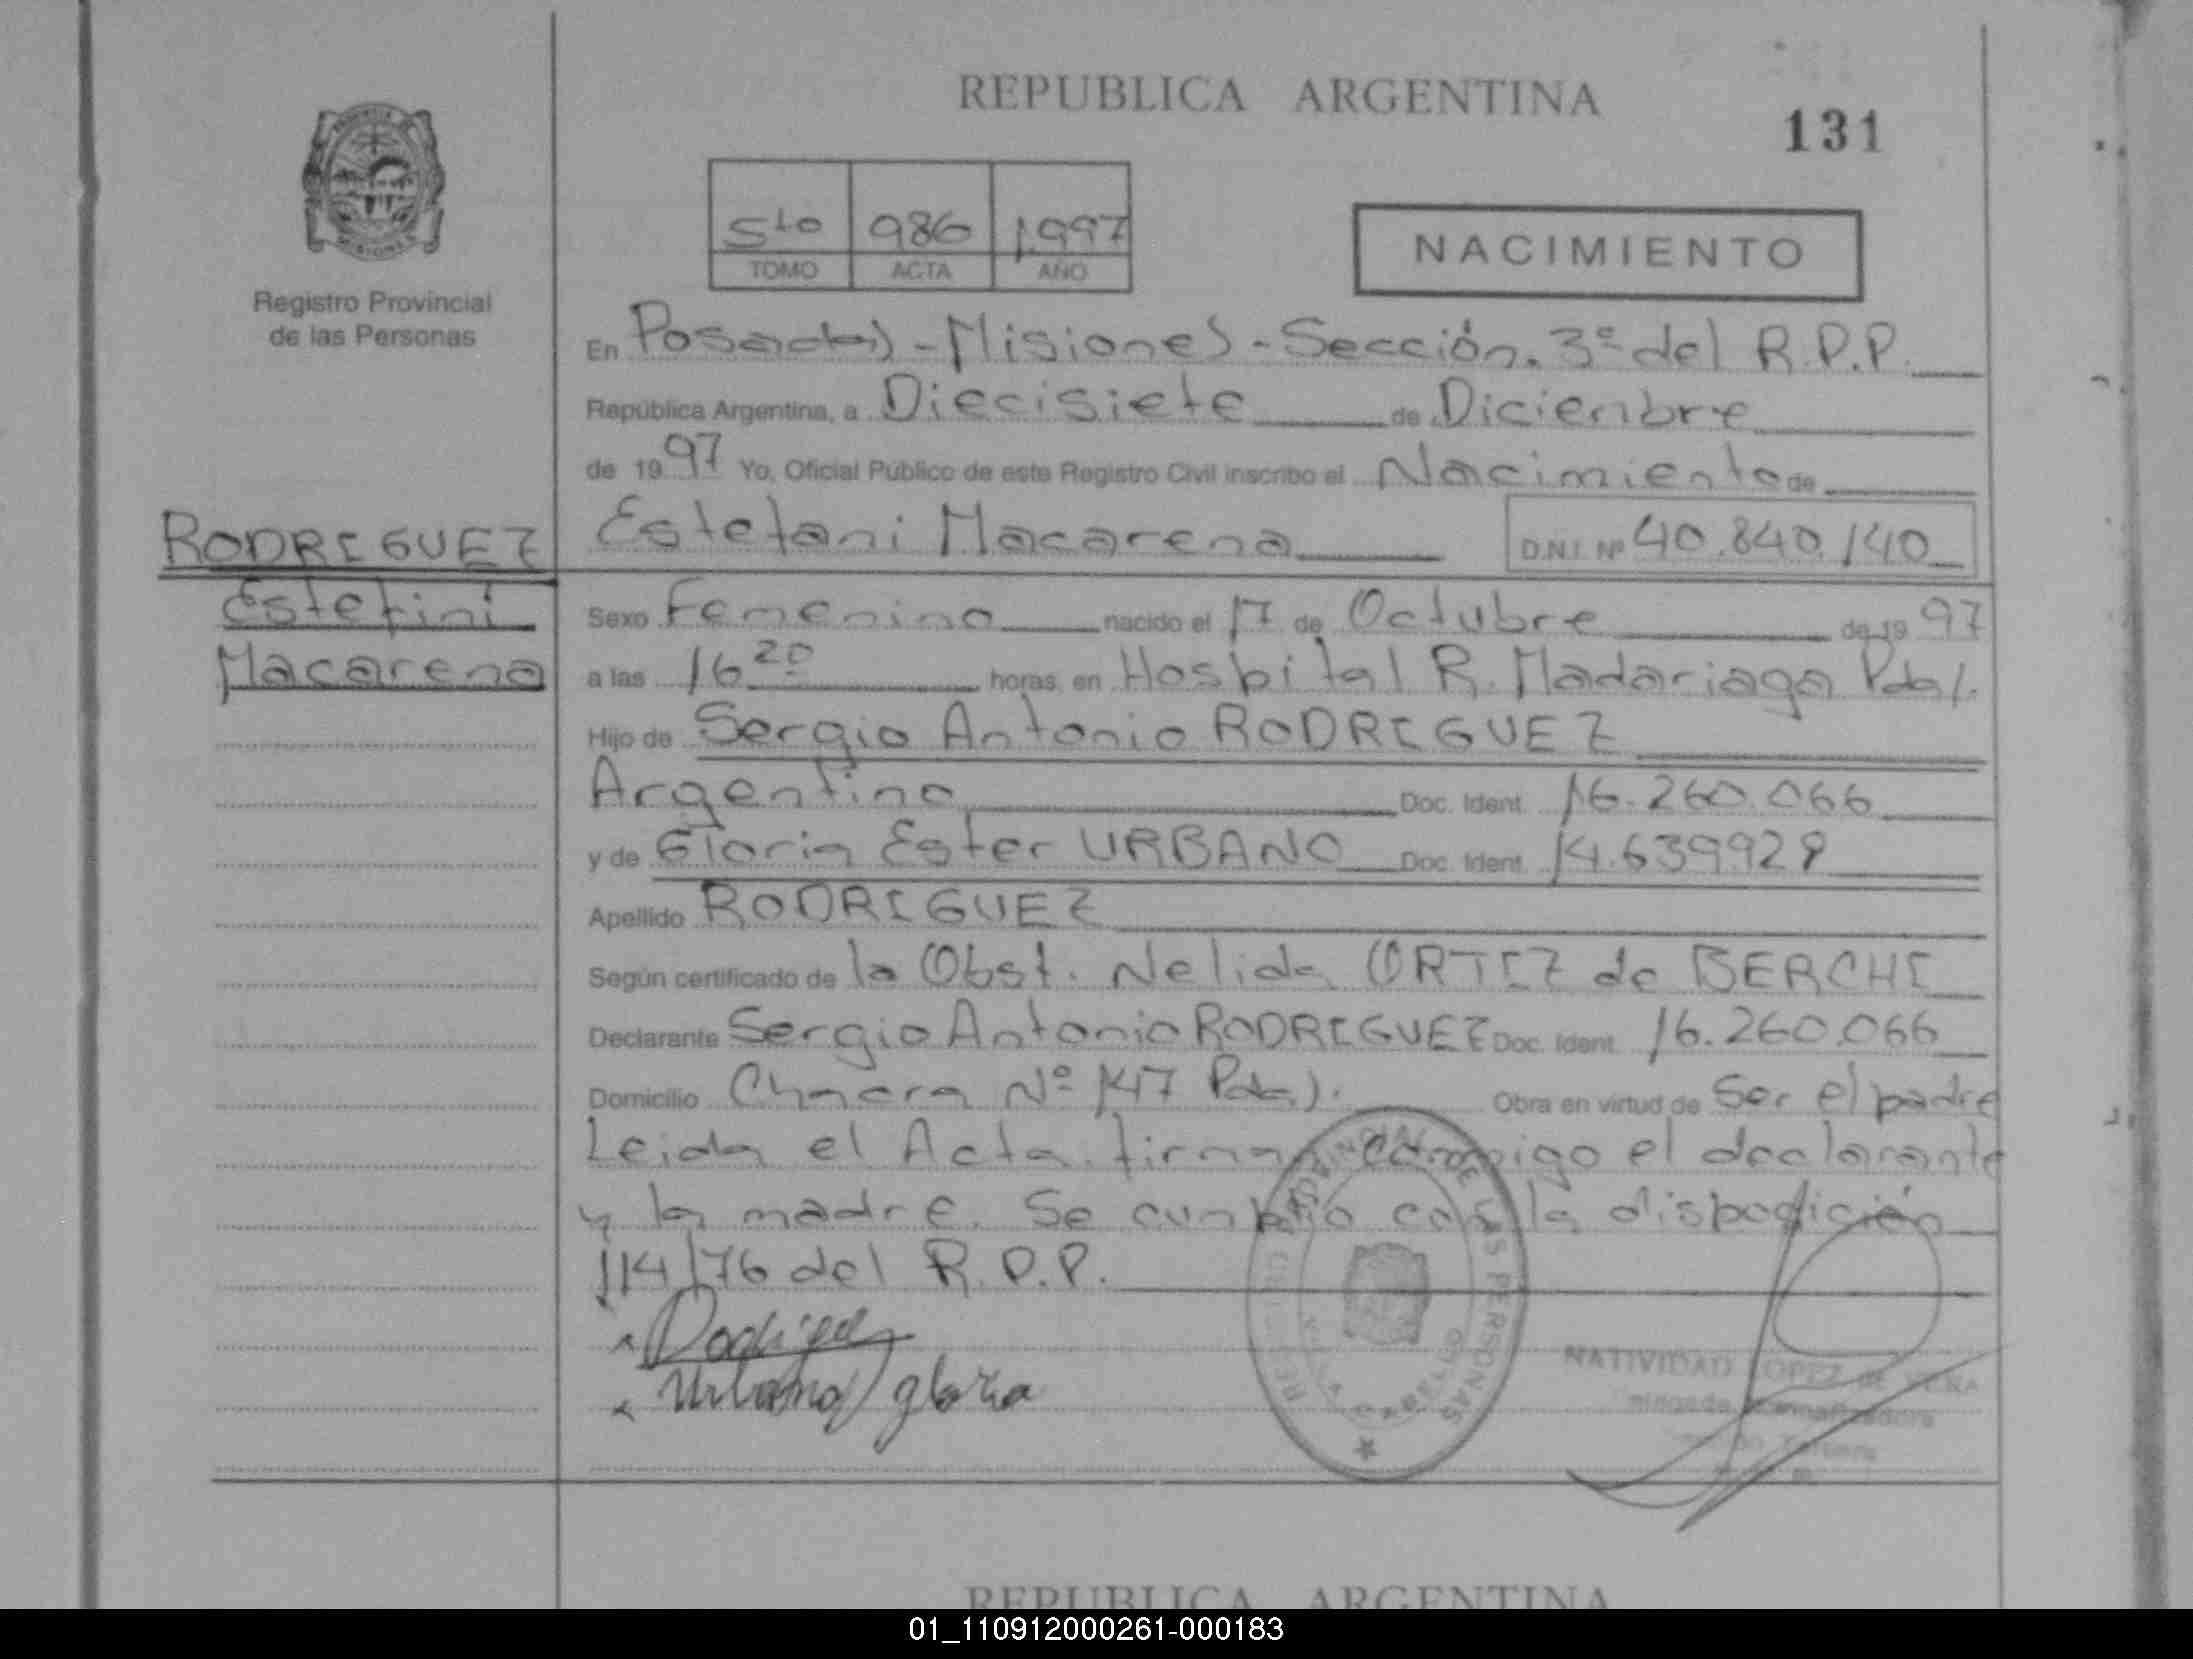 REPUBLICA ARGENTINA
131
5to 986 1.997
TOMO ACTA AÑO
NACIMIENTO
Registro Provincial
de las Personas
En Posadas - Misiones - Sección. 3º del R.P.P.
República Argentina, a Diecisiete de Diciembre
de 1997 Yo, Oficial Público de este Registro Civil inscribo el Nacimiento de
RODRIGUEZ
Estefani Macarena D.N.I. Nº 40.840.140
Estefini
Macarena
Sexo Femenino nacido el 17 de Octubre de 19 97
a las 16 20 horas, en Hospital R. Madariaga Pdas/.
Hijo de Sergio Antonio RODRIGUEZ
Argentino Doc. Ident. 16.260.066
y de Gloria Ester URBANO Doc. Ident. 14.639928
Apellido RODRIGUEZ
Según certificado de la Obst. Nelida ORTIZ de BERCHI
Declarante Sergio Antonio RODRIGUEZ Doc. Ident. 16.260.066
Domicilio Chacra Nº 147 Pdas). Obra en virtud de Ser el padre
Leida el Acta firma conmigo el declarante
y la madre. Se cumplio con la disposición
114/76 del R.P.P.
Urbano gloria
PROVINCIAL DE LAS PERSONAS
NATIVIDAD LOPEZ de VERA
REPUBLICA ARGENTINA
01_110912000261-000183